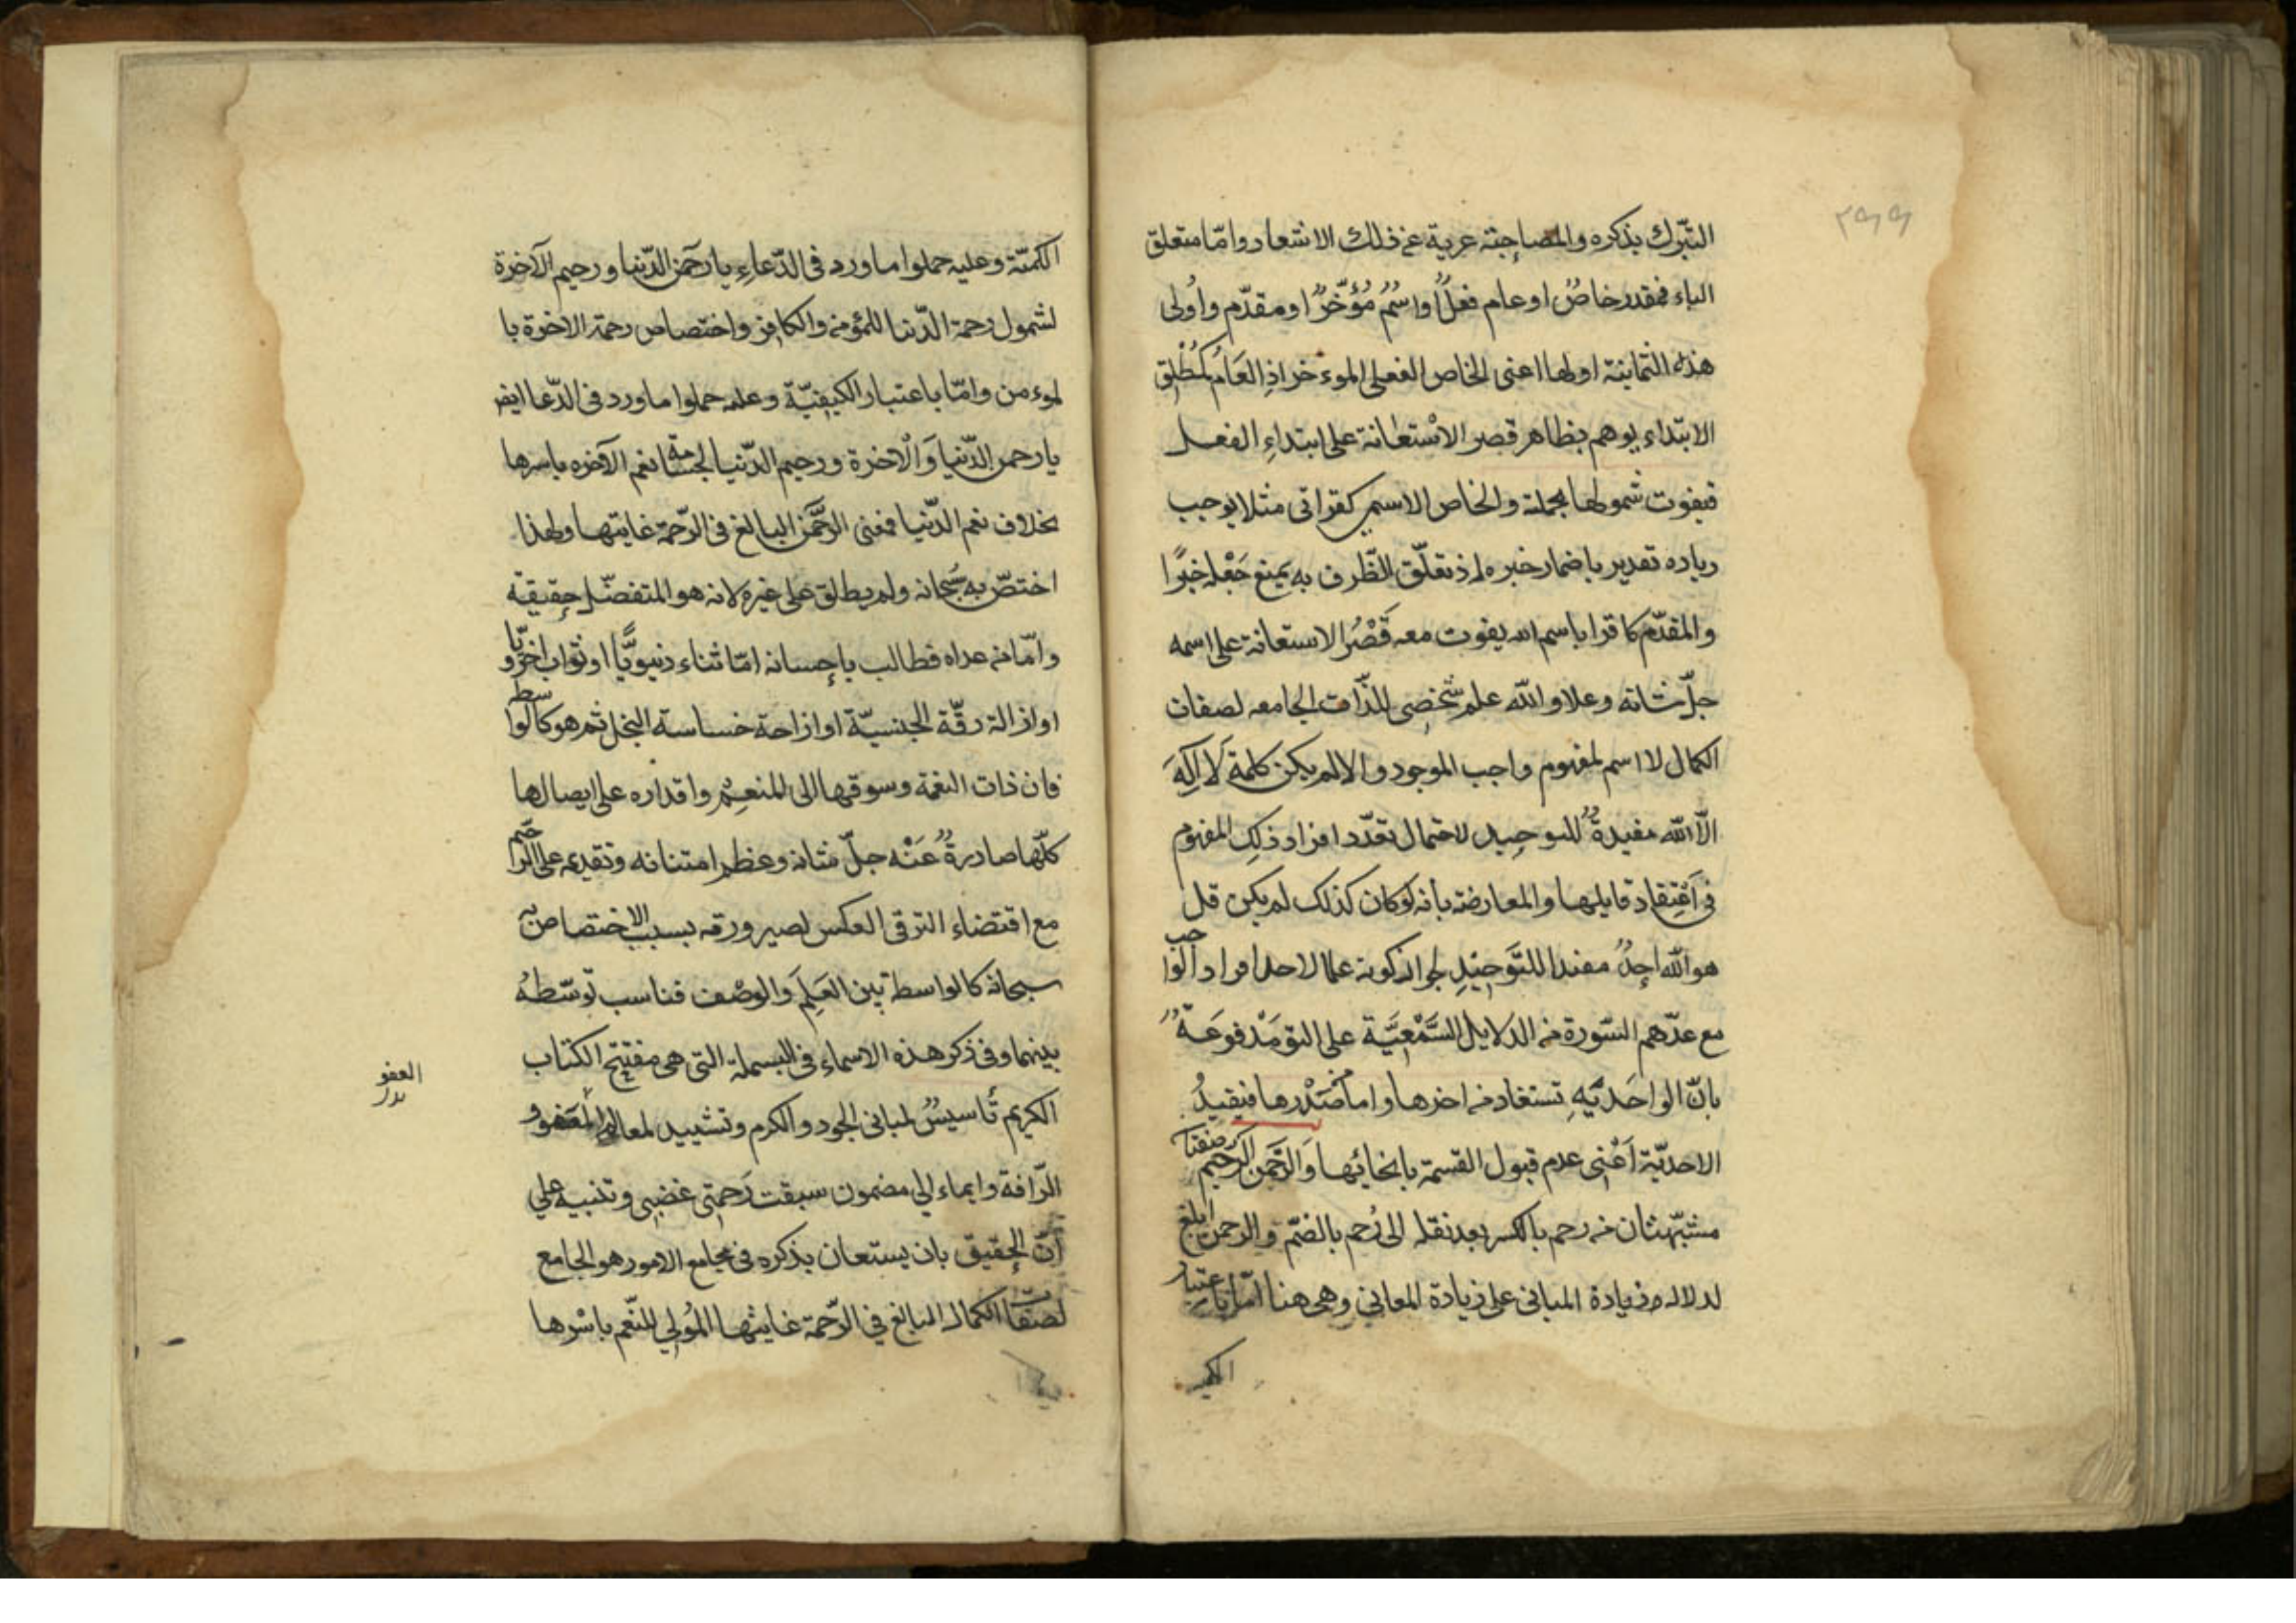 ٢٩٩
التبّرك بذكره والمصاحبته عرية عن ذلك الاشعار وامّا متعلق
الباء فمقدر خاصٌ او عام فعلٌ او اسْمٌ مُؤَخّرٌ او مقدّم واُولى
هذه الثمانية اولها اعنى الخاص الفعلى الموءخر اذِ العَام كمُطْلق
الابتداء يوهم بظاهر قصر الاسْتعانة على ابتداءِ الفعل
فيفوت شمولها بجملته والخاص الاسمى كقراتى مثلا يوجب
زياده تقدير باضمار خبره اذ تعلّق الظّرف به يمنع جَعْله خبرًا
والمقدّم كاقرا باسم الله يفوت معه قَصْرُ الاستعانة على اسمه
جلّ شانه وعلا والله علم شخصى للذّات الجامعه لصفات
الكمال لا اسم لمفهوم واجب الموجود والا لم يكن كلمة لَا اِلَهَ
الّا الله مفيدةً للتوحيد لاحتمال تعدّد افراد ذلك المفهوم
فى اعْتِقاد قايلها والمعارضه بأنه لوكان كذلك لم يكن قل
هو الله احدٌ مفيدا للتَّوحيْدِ لجواز كونه علما لاحد افراد الواجب
مع عدّهم السّورة من الدلايل السَّمْعيَّة على التو مَدْفوعَةٌ
بانّ الواحَديَّهِ تستفاد من اخرها واما صَدْرها فيفيدُ
الاحديّة اَعْنى عدم قبول القسمة بانحائها وَالرَّحمن الرحيم صفتا
مشبّهتان من رحم بالكسر بعد نقله الى رُحم بالضمّ والرحمن ابلغ
لدلاله زيادة المبانى على زيادة المعانى وهى هنا امّا باعتبار
الكمـ
الكمّيّة وعليه حملوا ما ورد فى الدّعاءِ يا رَحمن الدّنيا ورحيم الآخرة
لشمول رحمة الدّنيا للمؤمن والكافِر واختصاص رحمة الاخرة با
لموءمن وامّا باعتبار الكيفيّة وعليه حملوا ما ورد فى الدّعا ايض
يا رحمن الدّنيا وَالْآخرة ورحيم الدّنيا لجسامة نعم الآخره باسرها
بخلاف نعم الدّنيا فمعنى الرَّحمن البالغ فى الرّحمة غايتها ولهذا
اختصّ به سُبحانه ولم يطلق على غيره لانه هو المتفضّل حقيقة
وامّا من عداه فطالب بإحسانه امّا ثناء دنيويًّا او ثواب اخرويّا
او ازالة رقّة الجنسيّة او ازاحة خساسة البخل ثم هو كالواسطه
فان ذات النعمة وسوقها الى المنعِم واقداره على ايصالها
كلّها صادرةٌ عَنْه جلّ شانه وعظم امتنانه وتقديمه على الرّاحيم
مع اقتضاء الترقى العكس لصيرورته بسبب الاختصاص به
سبحانه كالواسطه بين العَلِمَ والوصْف فناسب توسّطهُ
بينهما وفى ذكر هذه الاسماء فى البسملة التى هى مفتتح الكتاب
الكريم تأسيسٌ لمبانى الجود والكرم وتشييد لمعالم العَفو و
الرّافة وايماء الى مضمون سبقت رَحمتى غضبى وتنبيه على
أنّ الحقيق بان يستعان بذكره فى مجامع الامور هو الجامع
لصفات الكمال البالغ فى الرّحمة غايتها المُولى للنّعم باسْرها
العفو
بدل